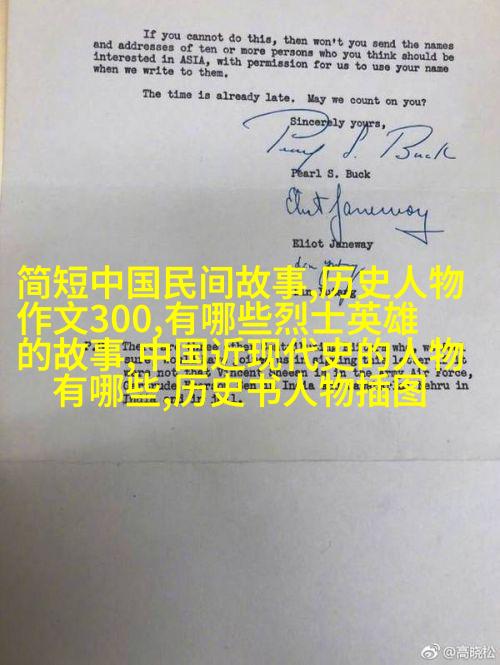 If you cannot do this, then won't you send the names
and addresses of ten or more persons who you think should be
interested in ASIA, with permission for us to use your name
when we write to them.
The time is already late. May we count on you?
Sincerely yours,
Pearl S. Buck
Pearl S. Buck
Eliot Janeway
Eliot Janeway
简短中国民间故事,历史人物
作文300,有哪些烈士英雄
的故事,中国近现代史的人物
有哪些,历史书人物插图
not that Vincent Sheean is in the Army Air Force,
India
India and
@高晓松